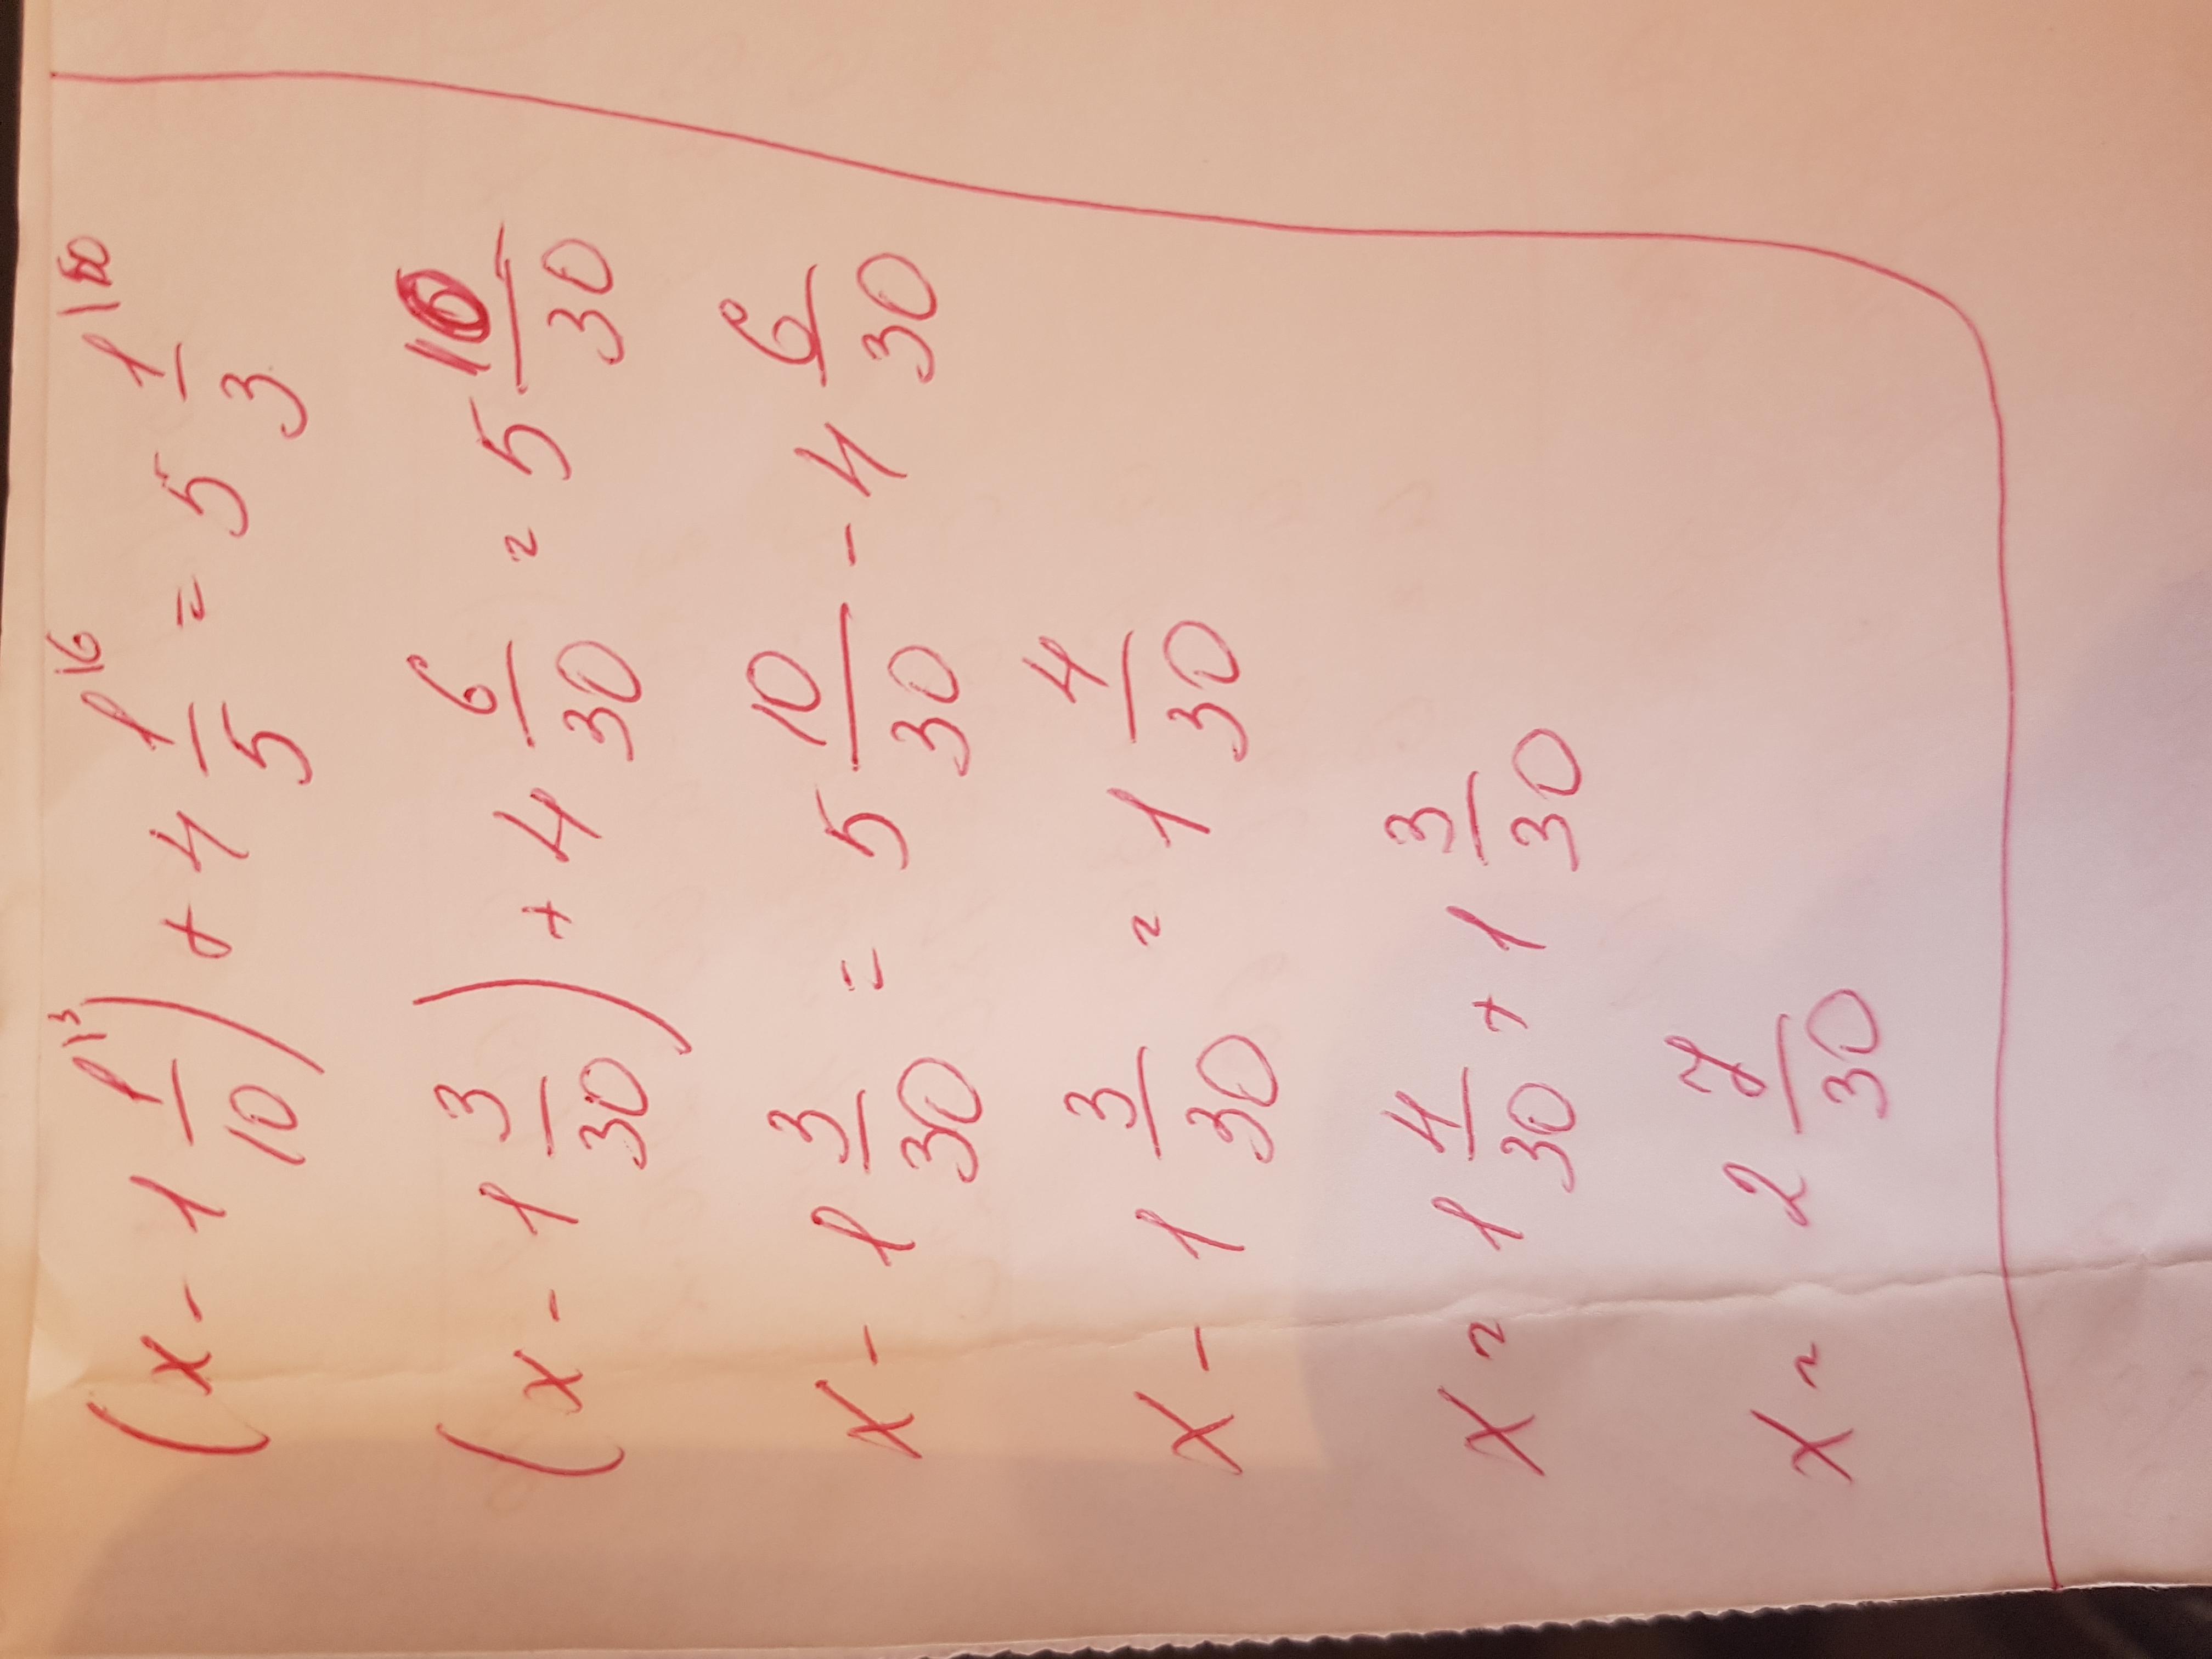 (x - 1 1/10 |3) + 4 1/5 |6 = 5 1/3 |10
(x - 1 3/30) + 4 6/30 = 5 10/30
x - 1 3/30 = 5 10/30 - 4 6/30
x - 1 3/30 = 1 4/30
x = 1 4/30 + 1 3/30
x = 2 7/30